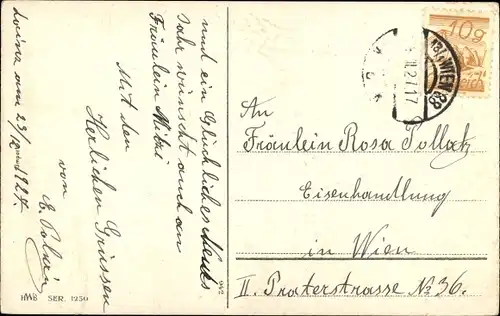 und ein Glückliches Neues
Jahr wünscht auch an
Fräulein Mitzi
Mit den
Herlichen Grüssen
von
am 23/ 1927.
An
Fräulein Rosa Pollak
Eisenhandlung
in Wien
II. Praterstrasse № 36.
HWB SER. 1250
10g
WIEN 88